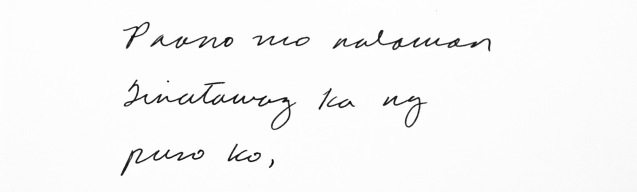 Paano mo nalaman
Tinatawag ka ng
puso ko,